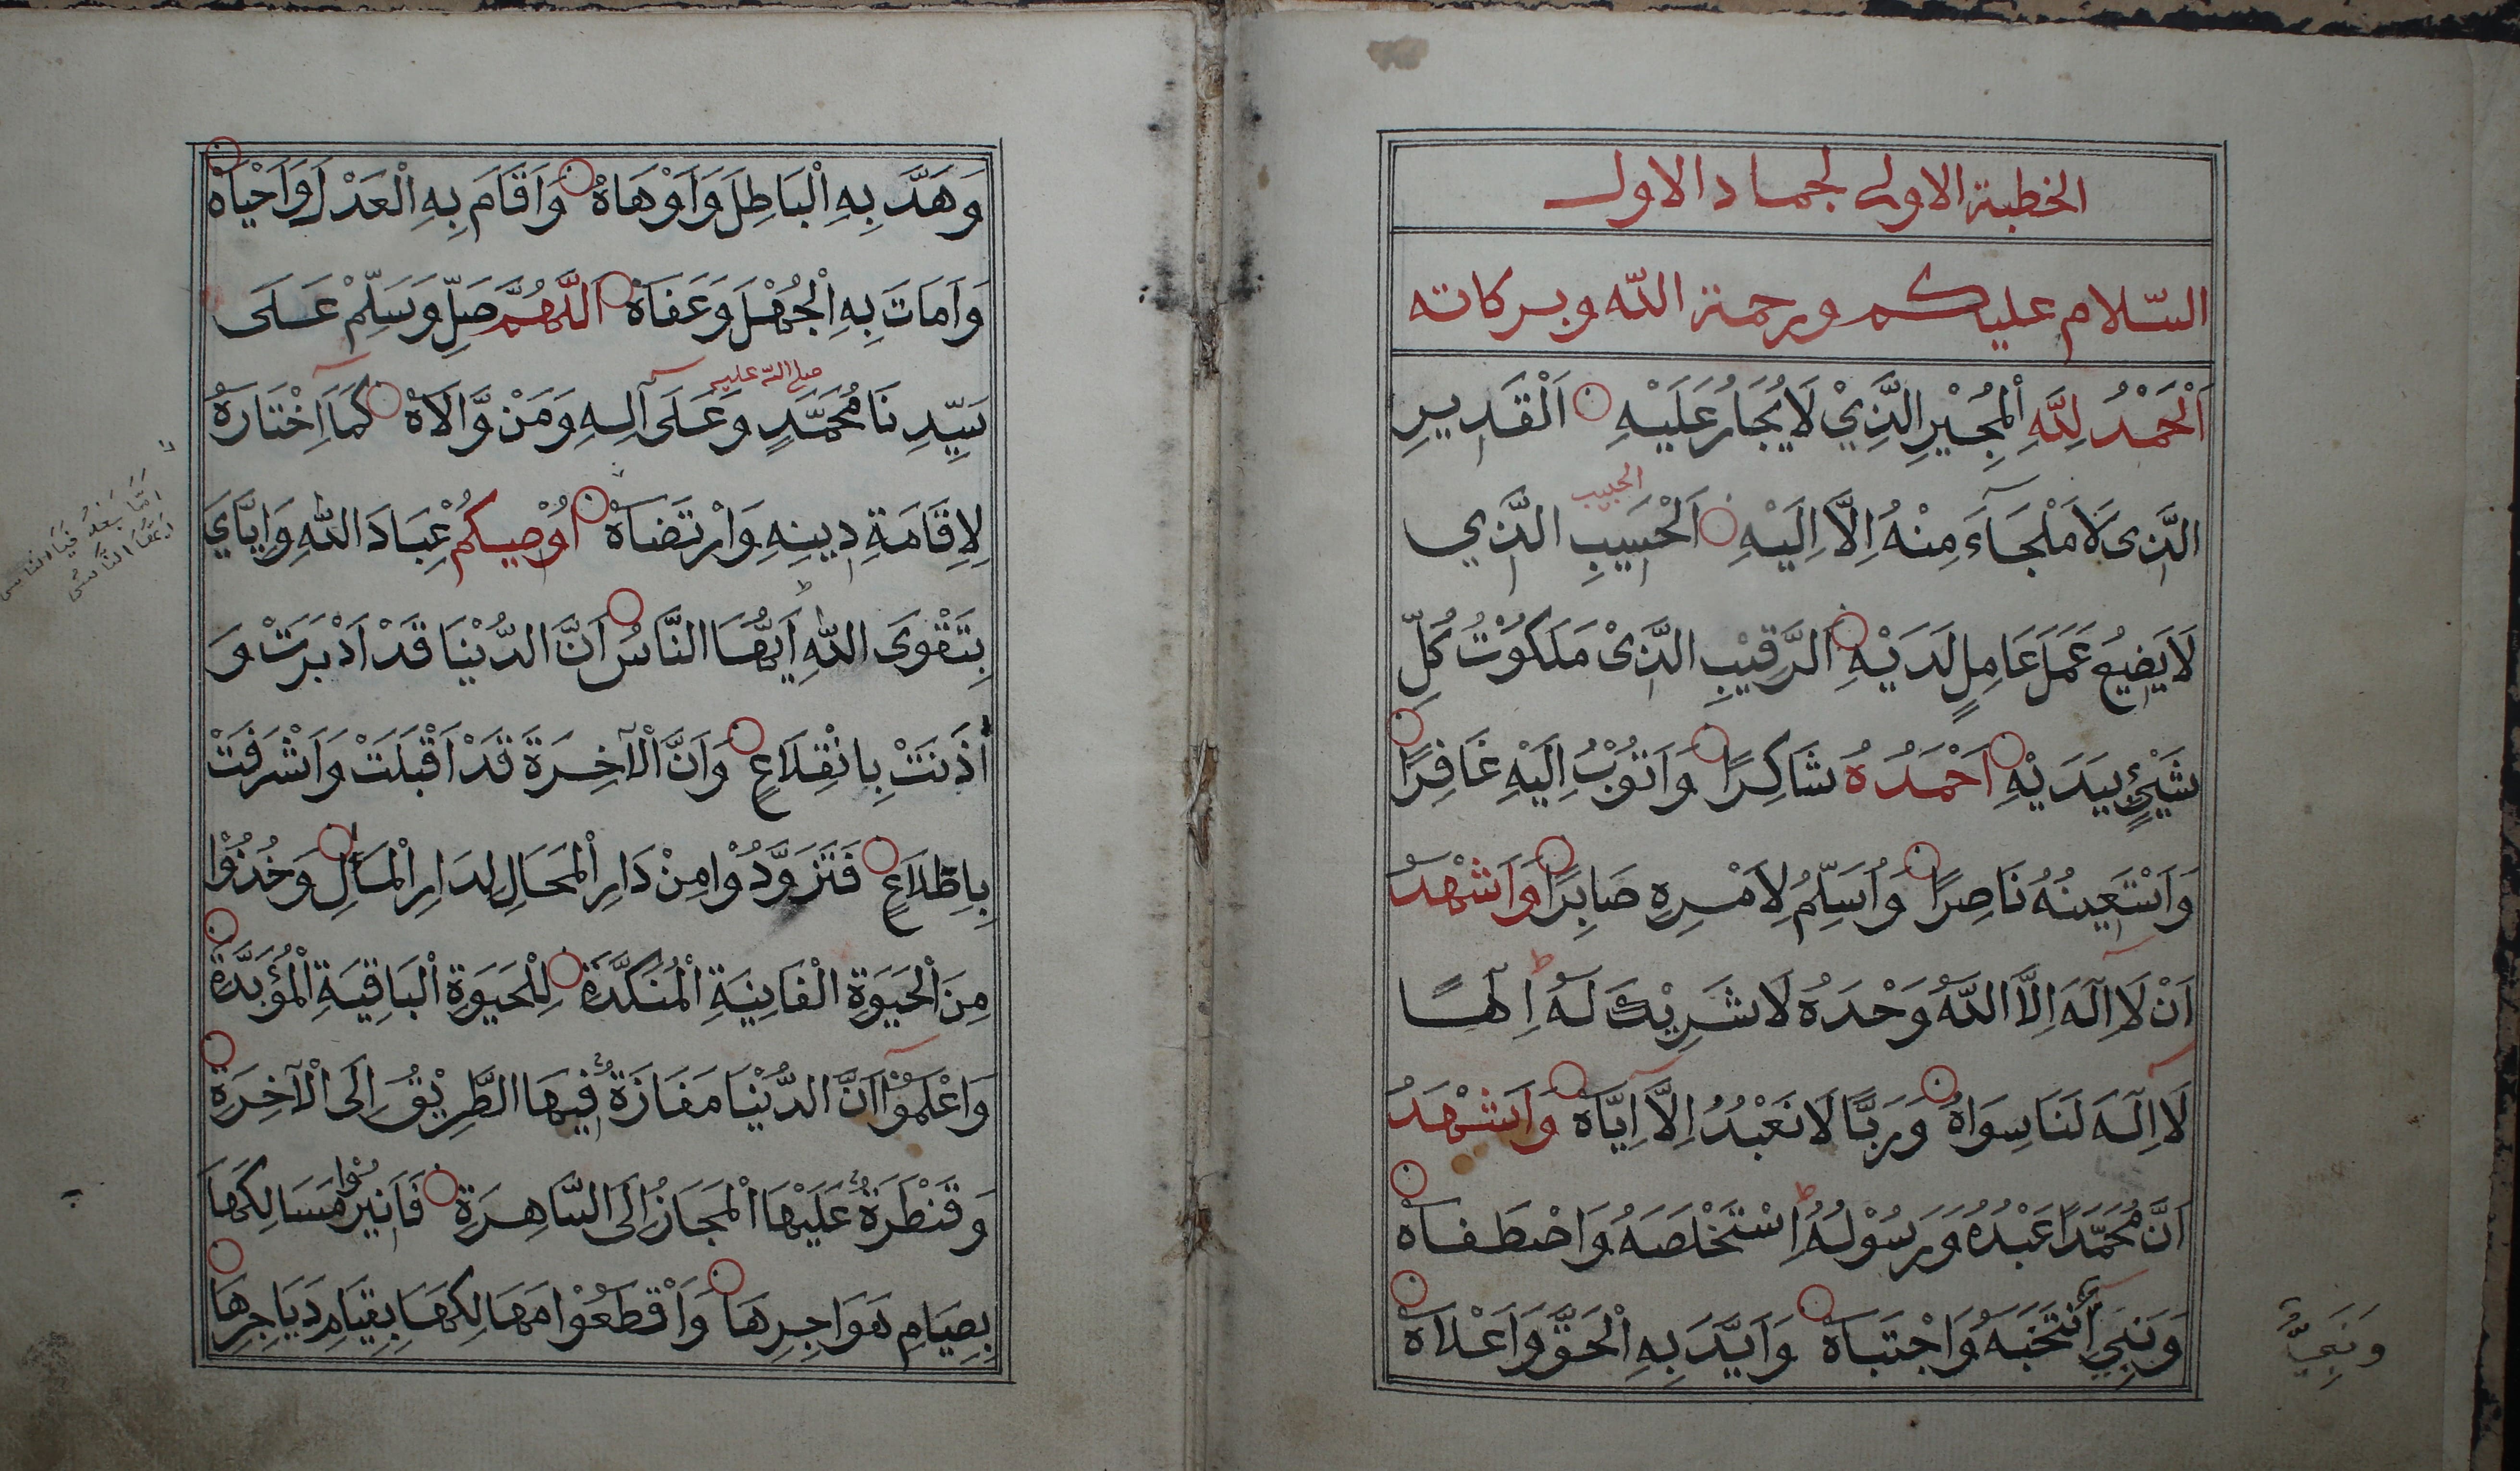 الخطبة الاولى لجماد الاول
السّلام عليكم ورحمة اللّه وبركاته
اَلْحَمْدُ لِلّٰهِ الْمُجِيْرِ الَّذِيْ لَا يُجَارُ عَلَيْهِ اَلْقَدِيرِ
الحبيب
الَّذِى لَا مَلْجَاَءَ مِنْهُ اِلَّا اِلَيْهِ اَلْحَسِيبِ الَّذِي
لَا يَضِيعُ عَمَلَ عَامِلٍ لَدَيْهِ اَلرَّقِيْبِ الَّذِىْ مَلَكُوْتُ كُلِّ
شَيْئٍ بِيَدَيْهِ اَحْمَدُهُ شَاكِرًا وَاَتُوْبُ اِلَيْهِ غَافِرًا
وَاَسْتَعِينُهُ نَاصِرًا وَاُسَلِّمُ لِاَمْرِهِ صَابِرًا وَاَشْهَدُ
اَنْ لَا اِلٰهَ اِلَّا اللّٰهُ وَحْدَهُ لَا شَرِيْكَ لَهُ اِلٰهًا
لَا اِلٰهَ لَنَا سِوَاهُ وَرَبًّا لَا نَعْبُدُ اِلَّا اِيَّاهُ وَاَشْهَدُ
اَنَّ مُحَمَّدًا عَبْدُهُ وَرَسُوْلُهُ اِسْتَخْلَصَهُ وَاصْطَفَاهُ
وَنَبِيُّ اَنْتَخَبَهُ وَاجْتَبَاهُ وَاَيَّدَ بِهِ الْحَقَّ وَاَعْلَاهُ
وَهَدَّ بِهِ الْبَاطِلَ وَاَوْهَاهُ وَاَقَامَ بِهِ الْعَدْلَ وَاَحْيَاهُ
وَاَمَاتَ بِهِ الْجُهْلَ وَعَفَاهُ اَللّٰهُمَّ صَلِّ وَسَلِّمْ عَلَى
صلى اللّه عليه
سَيِّدِنَا مُحَمَّدٍ وَعَلَى آلِهِ وَمَنْ وَّالَاهُ كَمَا اخْتَارَهُ
لِاِقَامَةِ دِينِهِ وَارْتَضَاهُ اُوْصِيكُمْ عِبَادَ اللّٰهِ وَاِيَّايَ
اَمَّا بَعْدُ فَيَا اَيُّهَا النَّاسُ
بِتَقْوَى اللّٰهِ اَيُّهَا النَّاسُ اَنَّ الدُّنْيَا قَدْ اَدْبَرَتْ وَ
اٰذَنَتْ بِانْقِلَاعٍ وَاَنَّ الْآخِرَةَ قَدْ اَقْبَلَتْ وَاَشْرَفَتْ
بِاطِّلَاعٍ فَتَزَوَّدُوْا مِنْ دَارِ الْمَحَالِ لِدَارِ الْمَآلِ وَخُذُوْا
مِنَ الْحَيَوةِ الْفَانِيَةِ الْمُنَكَّدَةِ لِلْحَيَوةِ الْبَاقِيَةِ الْمُؤَبَّدَةِ
وَاعْلَمُوْا اَنَّ الدُّنْيَا مَفَازَةٌ فِيهَا الطَّرِيْقُ اِلَى الْآخِرَةِ
وَقَنْطَرَةٌ عَلَيْهَا الْمَجَازُ اِلَى السَّاهِرَةِ فَاَنِيرُوْا مَسَالِكَهَا
بِصِيَامِ هَوَاجِرِهَا وَاقْطَعُوْا مَهَالِكَهَا بِقِيَامِ دَيَاجِرِهَا